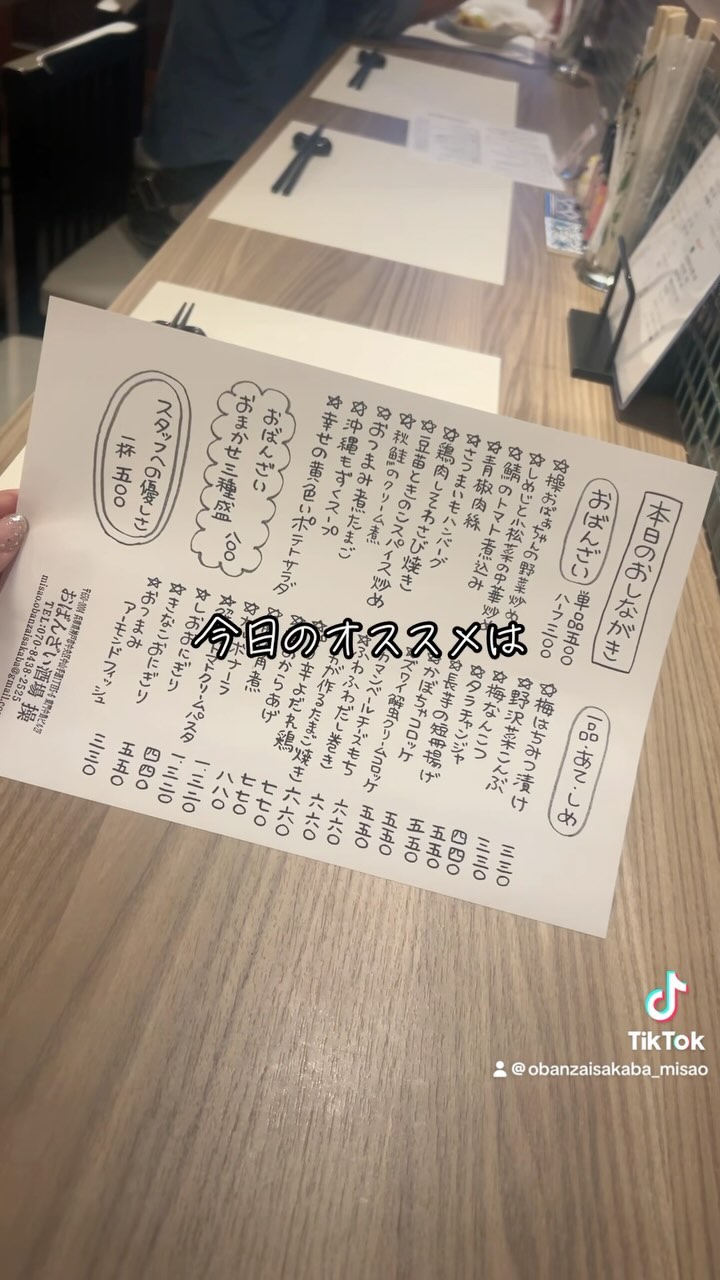 本日のおしながき
おばんざい
単品五〇〇
ハーフ三〇〇
☆操おばあちゃんの野菜炒め
☆しめじと小松菜の中華炒め
☆鯖のトマト煮込み
☆青椒肉絲
☆さつまいもハンバーグ
☆鶏肉しそわさび焼き
☆豆苗ときのこスパイス炒め
☆秋鮭のクリーム煮
☆おつまみ煮たまご
☆沖縄もずくスープ
☆幸せの黄色いポテトサラダ
おばんざい
おまかせ三種盛 八〇〇
スタッフへの優しさ
一杯 五〇〇
一品・あて・しめ
☆梅はちみつ漬け 三三〇
☆野沢菜こんぶ 三三〇
☆梅なんこつ 四四〇
☆タラチャンジャ 五五〇
☆長芋の短冊揚げ 五五〇
かぼちゃコロッケ 五五〇
ズワイ蟹クリームコロッケ 五五〇
カマンベールチーズもち 五五〇
ふわふわだし巻き 六六〇
が作るたまご焼き 六六〇
辛よだれ鶏 六六〇
からあげ 七七〇
角煮 七七〇
ボナーラ 八八〇
クリームパスタ 一.三二〇
☆しおおにぎり
☆きなこおにぎり 四四〇
☆おつまみ 五五〇
アーモンドフィッシュ 三三〇
おばんざい酒場 操
TEL:070-8438-2525
misao.obanzaisakaba@gmail.co
今日のオススメは
TikTok
@obanzaisakaba_misao